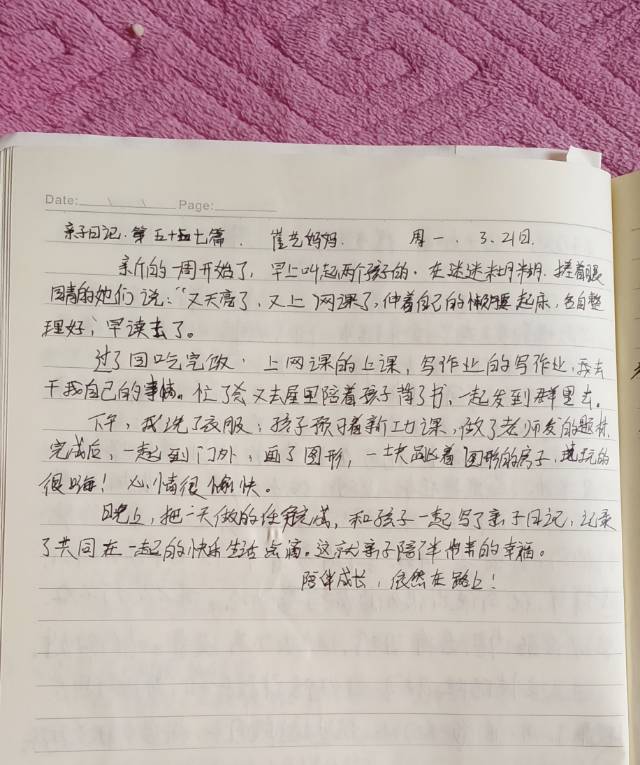 Date: Page:
亲子日记.第五十七篇. 崔艺妈妈. 周一.3.21日.
新的一周开始了,早上叫起两个孩子的.在迷迷糊糊.搓着眼
睛的她们说:“又天亮了,又上网课了,伸着自己的懒腰起床,各自整
理好;早读去了。
过了回吃完饭.上网课的上课,写作业的写作业,我去
干我自己的事情。忙了会又去屋里陪着孩子背了书,一起发到群里去。
下午,我洗了衣服;孩子预习着新的功课,做了老师发的题材.
完成后,一起到门外,画了图形,一块跳着图形的房子,玩的
很嗨!心情很愉快。
晚上,把一天做的任务完成,和孩子一起写了亲子日记,记录
了共同在一起的快乐生活点滴。这就亲子陪伴的幸福。
陪伴成长,依然在路上!